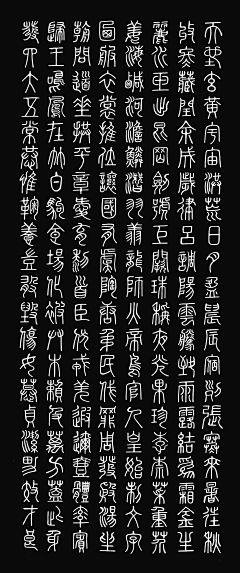 天地玄黃宇宙洪荒日月盈昃辰宿列張寒來暑往秋
收冬藏閏餘成歲律呂調陽雲騰致雨露結為霜金生
麗水玉出崑岡劍號巨闕珠稱夜光果珍李柰菜重芥
薑海鹹河淡鱗潛羽翔龍師火帝鳥官人皇始制文字
乃服衣裳推位讓國有虞陶唐弔民伐罪周發殷湯坐
朝問道垂拱平章愛育黎首臣伏戎羌遐邇壹體率賓
歸王鳴鳳在竹白駒食場化被草木賴及萬方蓋此身
髮四大五常恭惟鞠養豈敢毀傷女慕貞潔男效才良